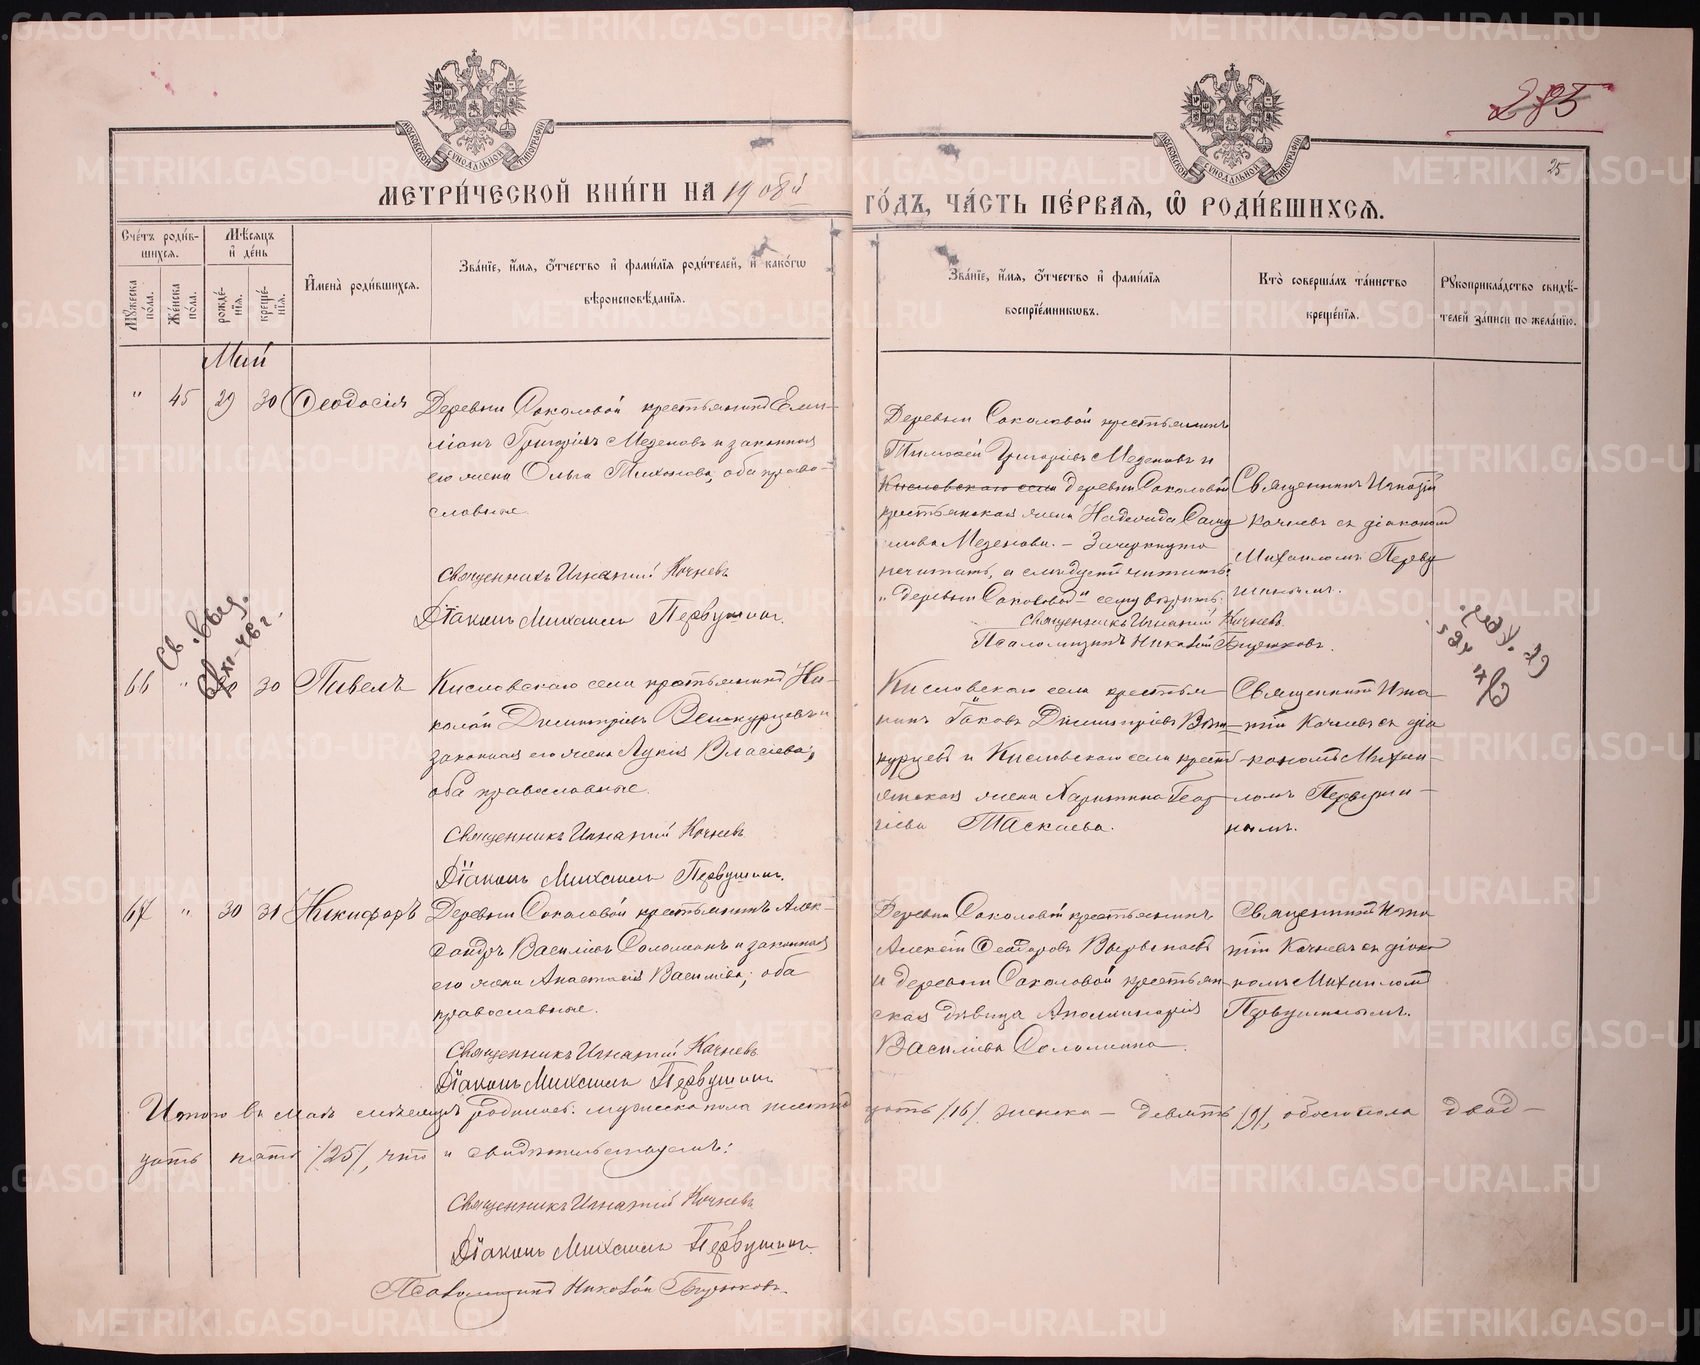 285
25
МОСКОВСКОЙ СѴНОДАЛЬНОЙ ТИПОГРАФІИ
МОСКОВСКОЙ СѴНОДАЛЬНОЙ ТИПОГРАФІИ
МЕТРИ́ЧЕСКОЙ КНИ́ГИ НА 1908й ГО́ДЪ, ЧА́СТЬ ПЕ́РВАЯ, Ѡ РОДИ́ВШИХСЯ.
Сче́тъ роди́в-
шихся.
Мꙋ́жеска по́ла.
Же́нска по́ла.
Мѣ́сяцъ
и҆ де́нь
рожде́-
нїя.
креще́-
нїя.
И҆мена̀ роди́вшихся.
Зва́нїе, и҆́мя, ѻ҆́тчество и҆ фами́лїя роди́телей, и҆ како́гѡ
вѣроисповѣ́данїя.
Зва́нїе, и҆́мя, ѻ҆́тчество и҆ фами́лїя
воспрїе́мникѡвъ.
Кто̀ соверша́лъ та́инство
креще́нїя.
Рꙋкоприкла́дство свидѣ́-
телей за́писи по жела́нїю.
Май
" 45 29 30 Ѳеодосія
Деревни Соколовой крестьянинъ Еми-
ліанъ Григоріевъ Мезеновъ и законная
его жена Ольга Тихонова; оба право-
славные.
Священникъ Игнатій Кочневъ
Діаконъ Михаилъ Первушинъ.
Деревни Соколовой крестьянинъ
Тимоѳей Григоріевъ Мезеновъ и
Кисловскаго села деревни Соколовой
крестьянская жена Надежда Саму
илова Мезенова. – Зачеркнуто
нечитать, а слѣдуетъ читать
„деревни Соколовой" сему вѣрить.
Священникъ Игнатій Кочневъ.
Псаломщикъ Николай Бирюковъ.
Священникъ Игнатій
Кочневъ съ діакономъ
Михаиломъ Перву
шинымъ.
Св. выд.
XI-46 г.
66 " 30 Павелъ
Кисловскаго села крестьянинъ Ни-
колай Димитріевъ Винокурцевъ и
законная его жена Лукія Власіева;
оба православные.
Священникъ Игнатій Кочневъ
Діаконъ Михаилъ Первушинъ.
Кисловскаго села крестья-
нинъ Іаковъ Димитріевъ Вино-
курцевъ и Кисловскаго села крестъ-
янская жена Харитина Геор-
гіева Таскаева.
Священникъ Игна-
тій Кочневъ съ діа
кономъ Михаи-
ломъ Первуши-
нымъ.
67 " 30 31 Никифоръ
Деревни Соколовой крестьянинъ Алек-
сандръ Василіевъ Соломеинъ и законная
его жена Анастасія Василіева; оба
православные.
Священникъ Игнатій Кочневъ
Діаконъ Михаилъ Первушинъ
Деревни Соколовой крестьянинъ
Алексій Ѳеодоровъ
и деревни Соколовой крестьян-
ская дѣвица Аполлинарія
Василіева Соломеина.
Священникъ Игна
тій Кочневъ съ діако
номъ Михаиломъ
Первушинымъ.
Итого въ маѣ мѣсяцѣ родилось: мужеска пола шестнадцать /16/, женска – девять /9/, обоего пола двад-
цать пять /25/, что и свидѣтельствуемъ:
Священникъ Игнатій Кочневъ
Діаконъ Михаилъ Первушинъ.
Псаломщикъ Николай Бирюковъ.
METRIKI.GASO-URAL.RU